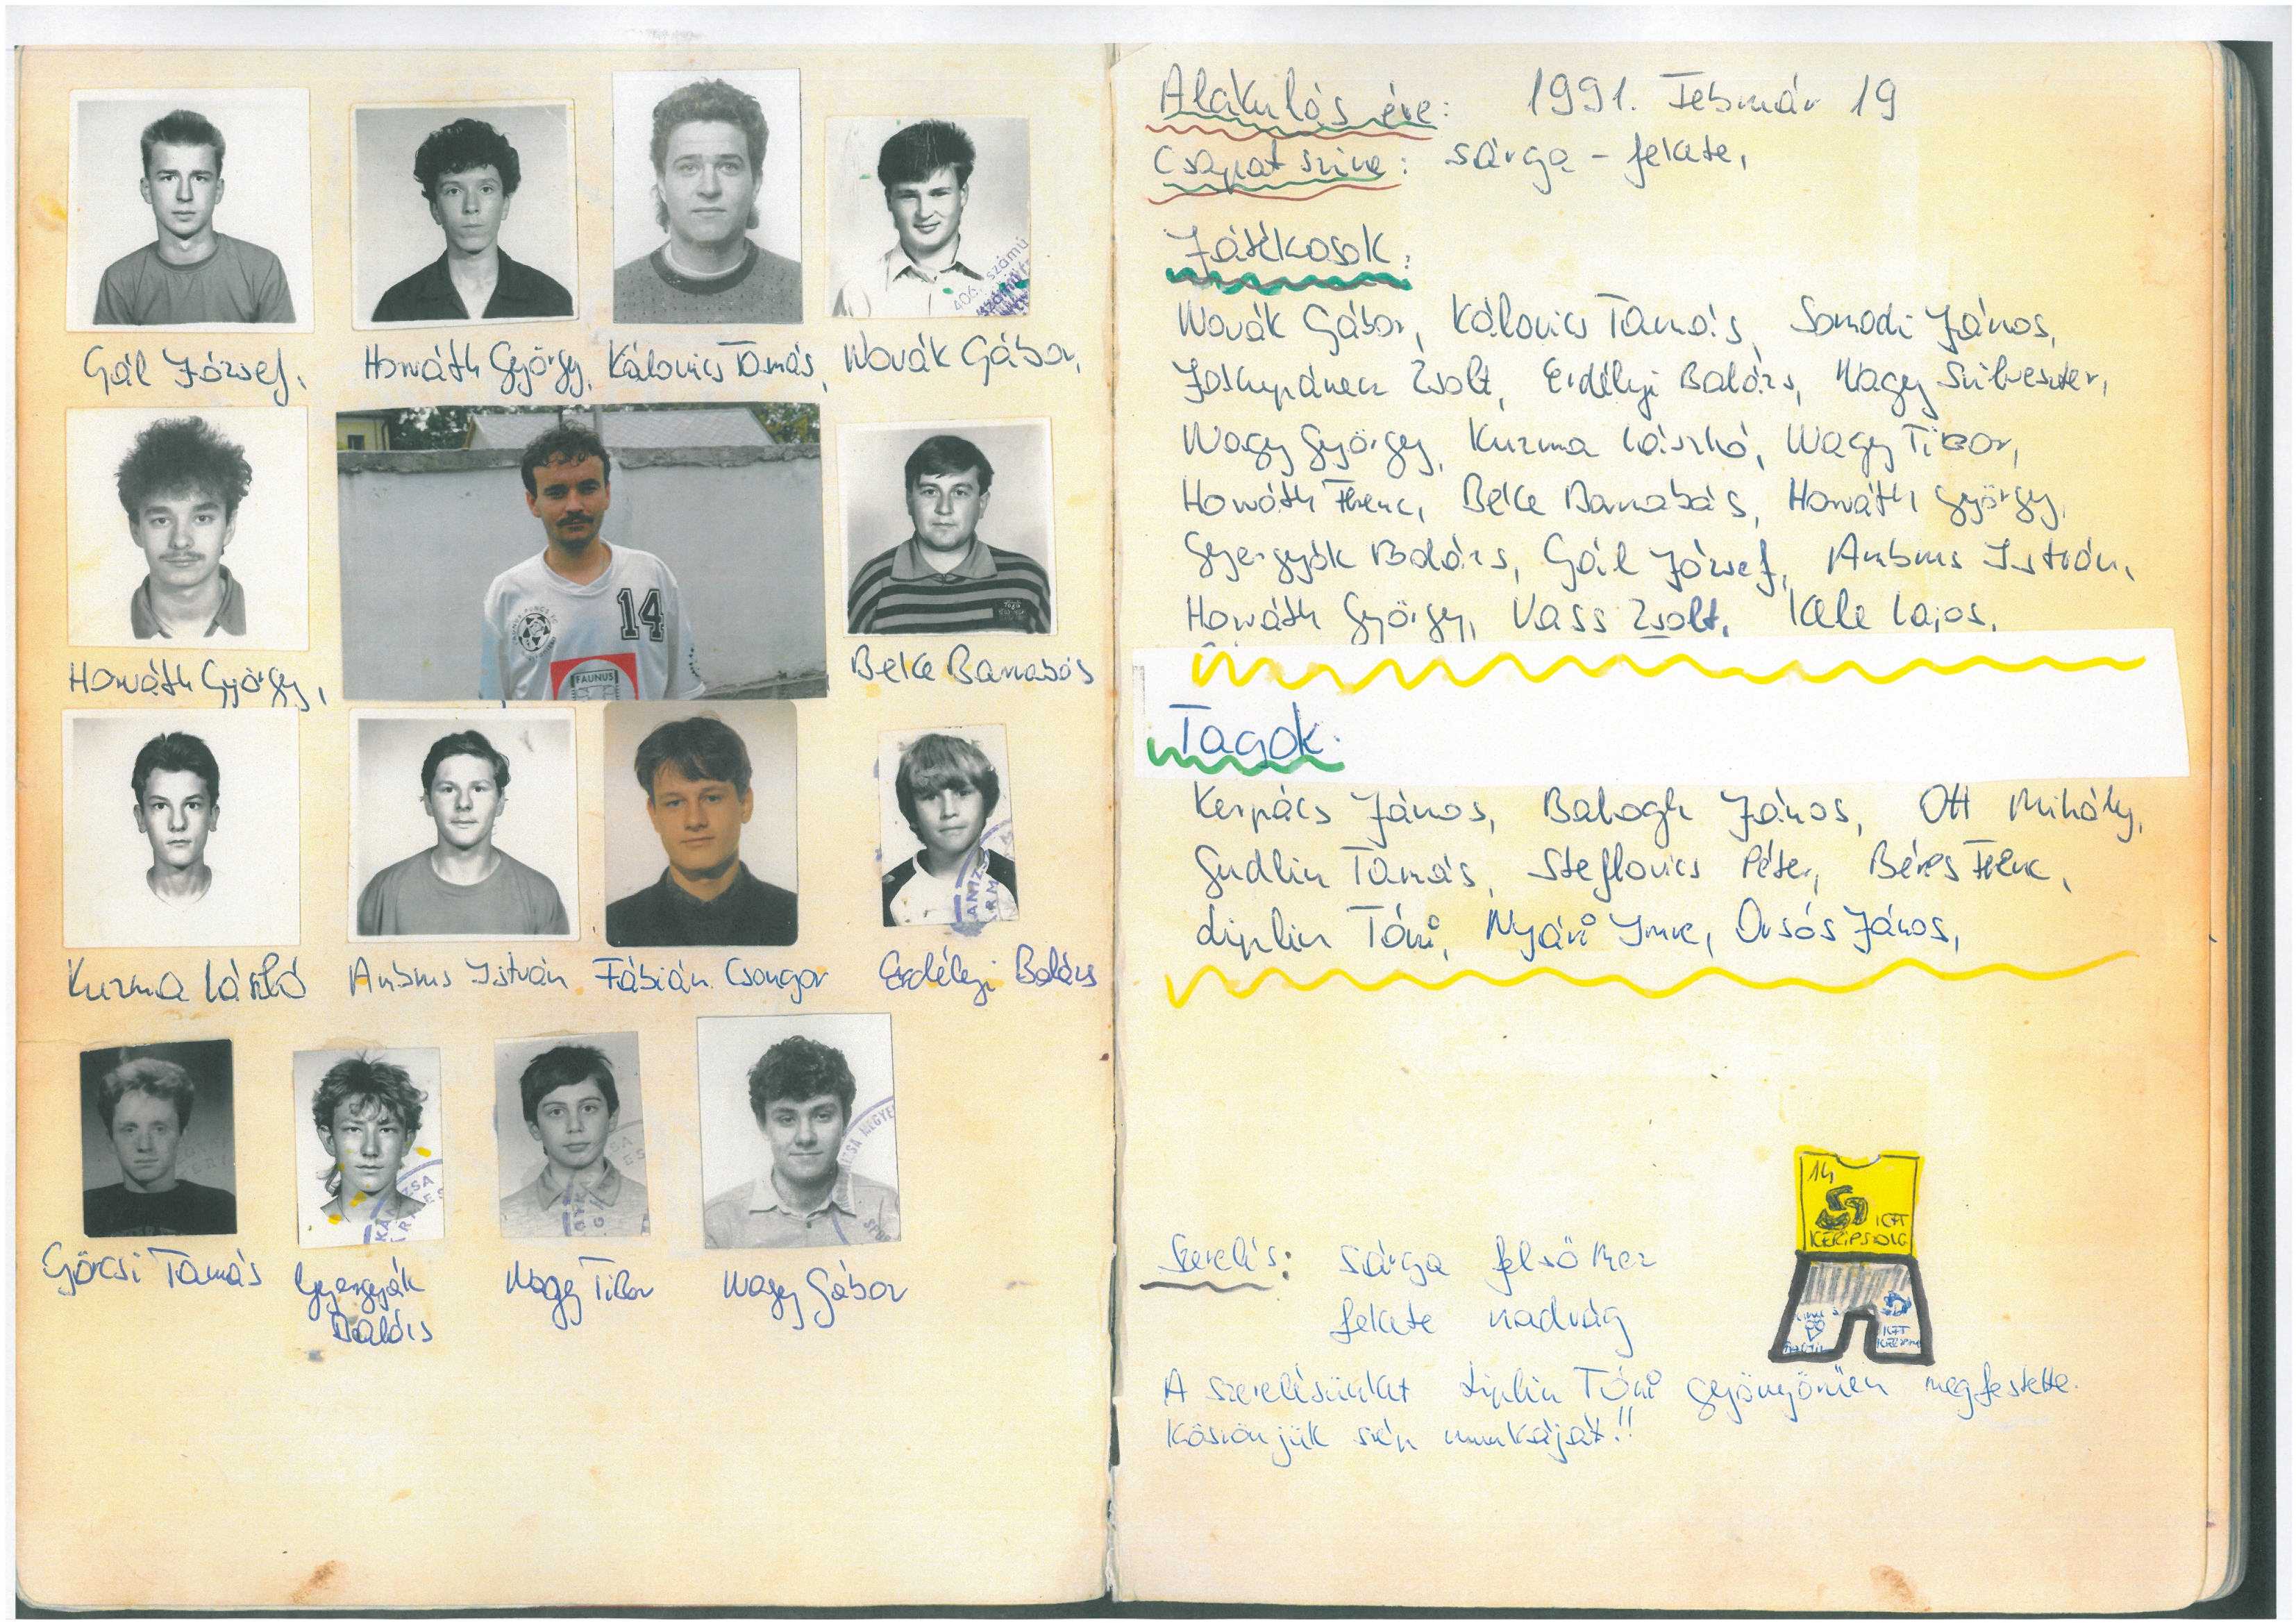 Gál József,
Horváth György,
Kálovics Tamás,
Novák Gábor,
406. számú
Horváth György,
14
FAUNUS
Beke Barnabás
Kuzma László
Ambrus István
Fábián Csongor
Erdélyi Balázs
Göcsi Tamás
Gyergyák
Balázs
Nagy Tibor
Nagy Gábor
Alakulás éve: 1991. Február 19
Csapat színe: sárga - fekete,
Játékosok:
Novák Gábor, Kálovics Tamás, Somodi János,
Zsolt, Erdélyi Balázs, Nagy Szilveszter,
Nagy György, Kuzma László, Nagy Tibor,
Horváth Ferenc, Beke Barnabás, Horváth György,
Gyergyák Balázs, Gál József, Ambrus István,
Horváth György, Vass Zsolt, Kele Lajos,
Tagok:
Kerpács János, Balogh János, Ott Mihály,
Gudlin Tamás, Steflovics Péter, Béres Ferenc,
Liplin Tóni, Nyári Imre, Orsós János,
14
KERIPSZOLG
Szerelés: sárga felső mez
fekete nadrág
A szerelésünket Liplin Tóni gyönyörűen megfestette.
Köszönjük szép munkáját!!